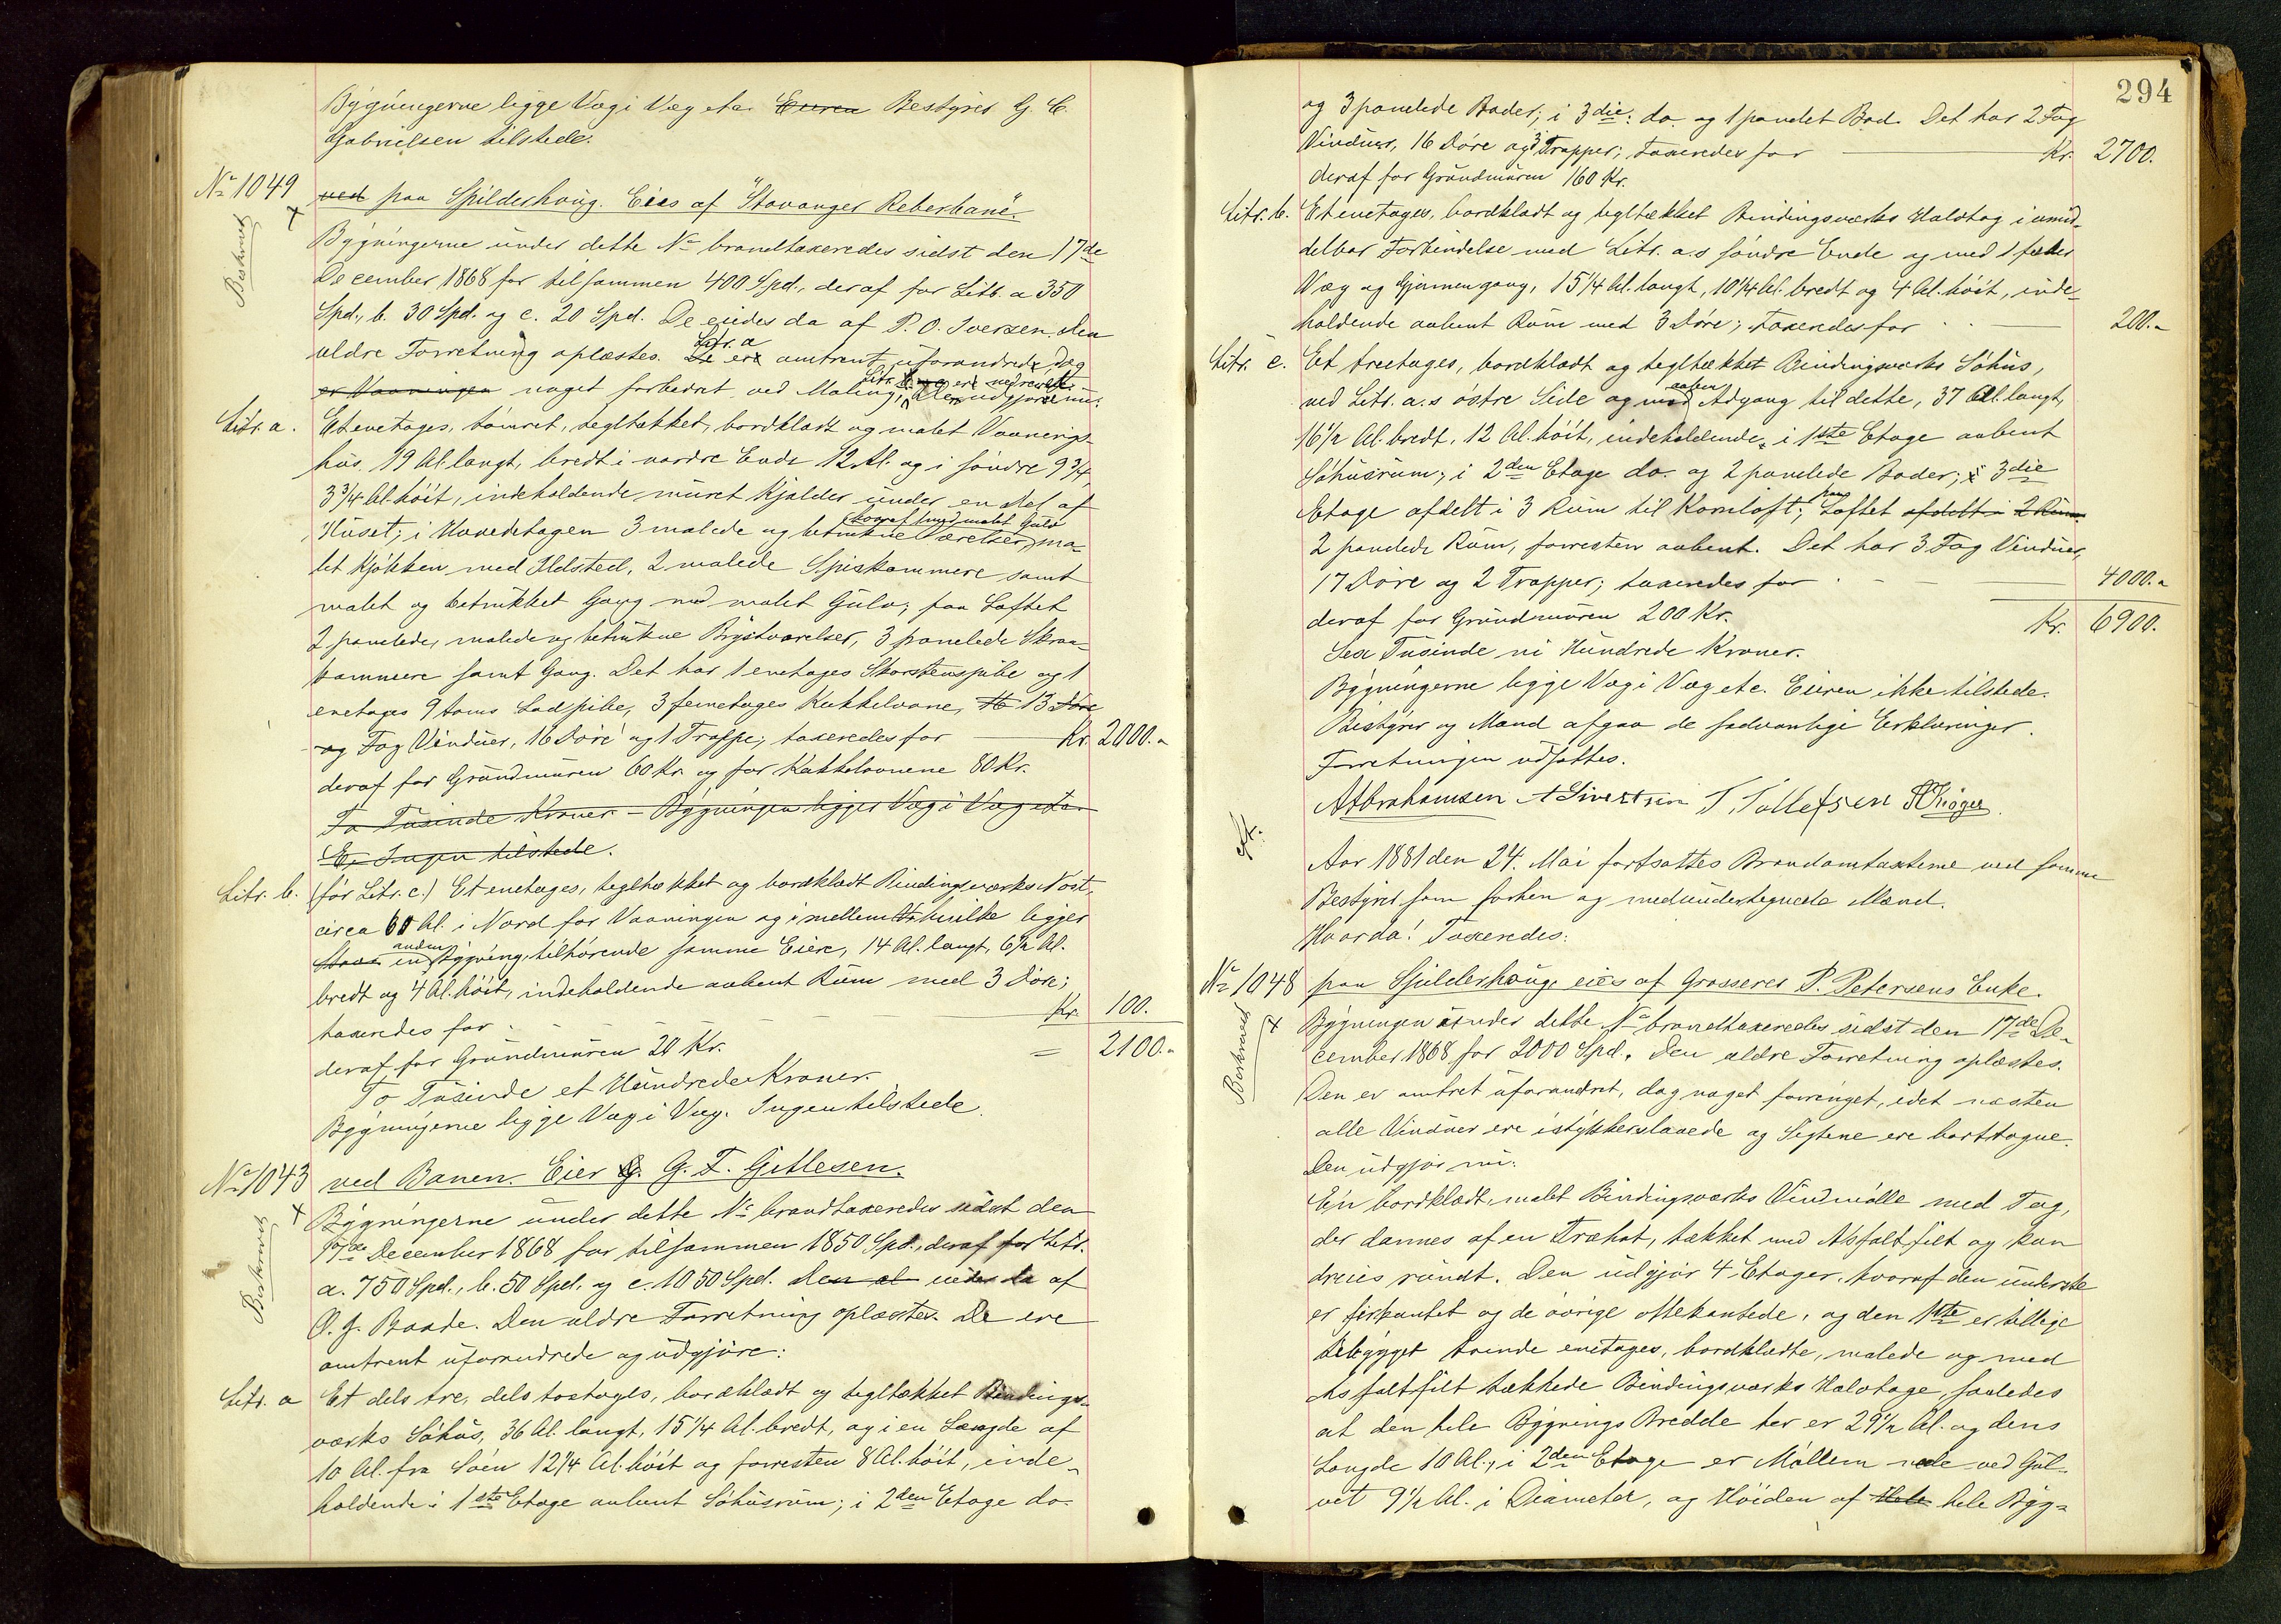 Bygningerne ligge Væg i Væg etc. Eieren Bestyrer G. C.
Gabrielsen tilstede.
No 1049
ved paa Spilderhaug. Eies af "Stavanger Reberbane".
Beskrevet
Bygningerne under dette No brandtaxeredes sidst den 17de
December 1868 for tilsammen 400 Spd., deraf for Litr. a 350
Spd., b. 30 Spd. og c. 20 Spd. De eiedes da af P. O. Iversen. Den
ældre Forretning oplæstes. De ere Litr. a omtrent uforandrede, dog
er Vaaningen noget forbedret ved Maling, Litr. er nedrevet. De udgjøre nu:
Litr. a.
Et enetages, tømret, tegltækket, bordklædt og malet Vaanings-
hus, 19 Al. langt, bredt i nordre Ende 12 Al. og i søndre 9 3/4,
3 3/4 Al. høit, indeholdende muret Kjælder under en Del af
Huset; i Hovedetagen 3 malede og betrukne Værelser, hvoraf 1 med malet Gulv, ma-
let Kjøkken med Ildsted, 2 malede Spiskammere samt
malet og betrukket Gang med malet Gulv; paa Loftet
2 panelede, malede og betrukne Brystværelser, 3 panelede Skraa-
kammere samt Gang. Det har 1 enetages Skorstenspibe og 1
enetages 9 toms Lodpibe, 3 jernetages Kakkelovne, 16 13 Døre
og Fag Vinduer, 16 Døre og 1 Trappe; taxeredes for Kr. 2000.-
deraf for Grundmuren 60 Kr. og for Kakkelovnene 80 Kr.
To Tusinde Kroner - Bygningen ligger Væg i Væg etc.
Ei Ingen tilstede.
Litr. b.
(før Litr. c.) Et enetages, tegltækket og bordklædt Bindingsværks Nøst
circa 60 Al. i Nord for Vaaningen og imellem hvilke ligger
en anden Bygning, tilhørende samme Eiere, 14 Al. langt, 6 1/2 Al.
bredt og 4 Al. høit, indeholdende aabent Rum med 3 Døre;
taxeredes for Kr. 100.
deraf for Grundmuren 20 Kr. = 2100.-
To Tusinde et Hundrede Kroner.
Bygningerne ligge Væg i Væg. Ingen tilstede.
No 1043
ved Banen. Eier G. G. T. Gitlesen.
Beskrevet
Bygningerne under dette No brandtaxeredes sidst den
17de December 1868 for tilsammen 1850 Spd., deraf for Litr.
a. 750 Spd., b. 50 Spd. og c. 1050 Spd. Den æl eiedes da af
O. J. Baade. Den ældre Forretning oplæstes. De ere
omtrent uforandrede og udgjøre:
Litr. a
Et dels tre, dels toetages, bordklædt og tegltækket Bindings-
værks Søhus, 36 Al. langt, 15 1/4 Al. bredt, og i en Længde af
10 Al. fra Søen 12 1/4 Al. høit og forresten 8 Al. høit, inde-
holdende i 1ste Etage aabent Søhusrum; i 2den Etage do.
294
og 3 panelede Boder; i 3die: do. og 1 panelet Bod. Det har 2 Fag
Vinduer, 16 Døre og 3 Trapper; taxeredes for Kr. 2700.
deraf for Grundmuren 160 Kr.
Litr. b.
Et enetages, bordklædt og tegltækket Bindingsværks Halvtag i umid-
delbar Forbindelse med Litr. a.s søndre Ende og med 1 fælles
Væg og Gjennemgang, 15 1/4 Al. langt, 10 1/4 Al. bredt og 4 Al. høit, inde-
holdende aabent Rum med 3 Døre; taxeredes for 200.-
Litr. c.
Et treetages, bordklædt og tegltækket Bindingsværks Søhus,
ved Litr. a.s østre Side og med aaben Adgang til dette, 37 Al. langt,
16 1/2 Al. bredt, 12 Al. høit, indeholdende, i 1ste Etage aabent
Søhusrum; i 2den Etage do. og 2 panelede Boder; i 3die
Etage afdelt i 3 Rum til Kornloft; paa Loftet afdelt i 2 Rum
2 panelede Rum, forresten aabent. Det har 3 Fag Vinduer,
17 Døre og 2 Trapper; taxeredes for 4000.-
deraf for Grundmuren 200 Kr. Kr. 6900.
Sex Tusinde ni Hundrede Kroner.
Bygningerne ligge Væg i Væg etc. Eieren ikke tilstede.
Bestyrer og Mænd afgav de sædvanlige Erklæringer.
Forretningen udsattes.
A Abrahamsen A Sivertsen T. Tollefsen
Aar 1881 den 24. Mai fortsattes Brandomtaxterne ved samme
Bestyrer som forhen og medundertegnede Mænd.
Hvorda! Taxeredes:
No 1048
paa Spilderhaug, eies af Grosserer P. Petersens Enke.
Beskrevet
Bygningen under dette No brandtaxeredes sidst den 17de De-
cember 1868 for 2000 Spd. Den ældre Forretning oplæstes.
Den er omtret uforandret, dog noget forringet, idet næsten
alle Vinduer ere istykkerslaaede og Sigtene ere borttagne.
Den udgjør nu:
En bordklædt, malet Bindingsværks Vindmølle med Tag,
der dannes af en Træhat, tækket med Asfaltfilt og kan
dreies rundt. Den udgjør 4 Etager, hvoraf den underste
er firkantet og de øvrige ottekantede, og den 1ste er tillige
tilbygget tvende enetages, bordklædte, malede og med
Asfaltfilt tækkede Bindingsværks Halvtage, saaledes
at den hele Bygnings Bredde her er 29 1/2 Al. og dens
Længde 10 Al., i 2den Etage er Møllen nede ved Gul-
vet 9 1/2 Al. i Diameter, og Høiden af Hele hele Byg-